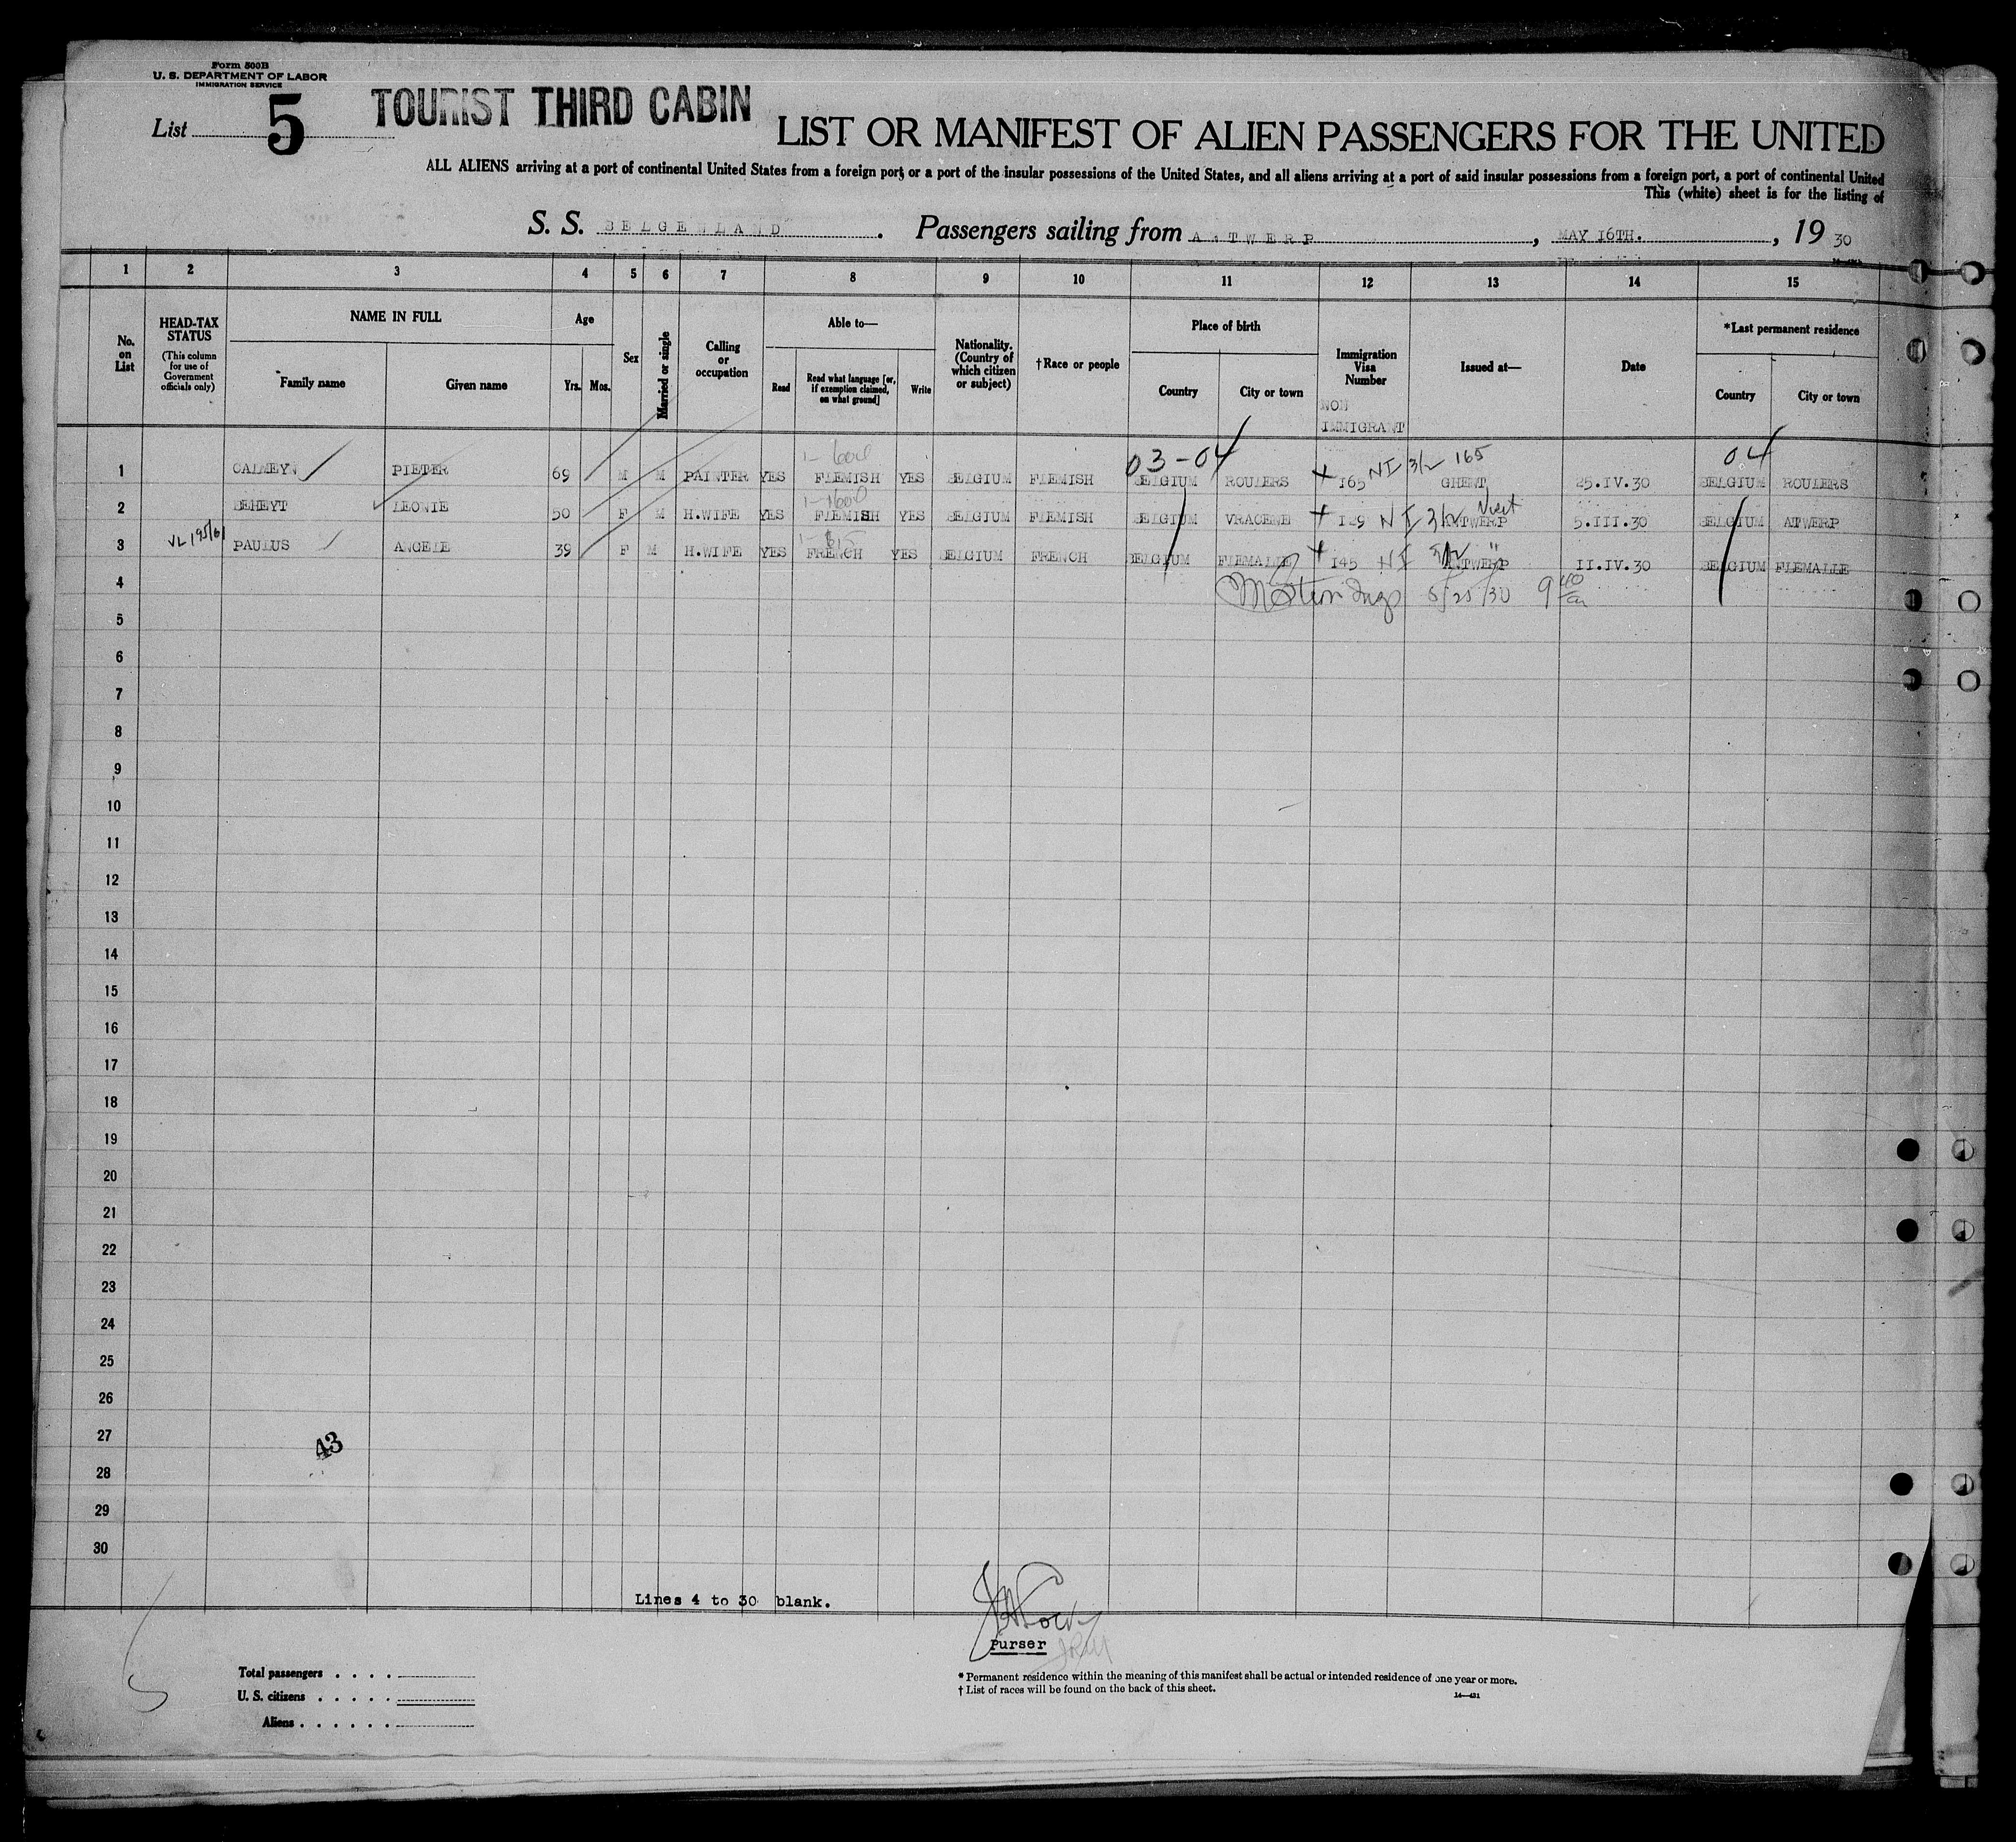 Form 500B
U. S. DEPARTMENT OF LABOR
IMMIGRATION SERVICE
List 5
TOURIST THIRD CABIN
LIST OR MANIFEST OF ALIEN PASSENGERS FOR THE UNITED
ALL ALIENS arriving at a port of continental United States from a foreign port or a port of the insular possessions of the United States, and all aliens arriving at a port of said insular possessions from a foreign port, a port of continental United
This (white) sheet is for the listing of
S. S. BELGENLAND. Passengers sailing from ANTWERP, MAY 16TH., 19 30
1 2 3 4 5 6 7 8 9 10 11 12 13 14 15
No. on List
HEAD-TAX STATUS (This column for use of Government officials only)
NAME IN FULL
Family name Given name
Age
Yrs. Mos.
Sex
Married or single
Calling or occupation
Able to—
Read Read what language [or, if exemption claimed, on what ground] Write
Nationality. (Country of which citizen or subject)
†Race or people
Place of birth
Country City or town
Immigration Visa Number
NON IMMIGRANT
Issued at—
Date
*Last permanent residence
Country City or town
03-04 NI 3/2 165 04
1 CALMEYN PIETER 69 M M PAINTER YES FLEMISH YES BELGIUM FLEMISH BELGIUM ROULERS I65 GHENT 25.IV.30 BELGIUM ROULERS
2 BEHEYT LEONIE 50 F M H.WIFE YES FLEMISH YES BELGIUM FLEMISH BELGIUM VRACENE I29 NI 3/2 ANTWERP 5.III.30 BELGIUM ATWERP
3 PAULUS ANGELE 39 F M H.WIFE YES FRENCH YES BELGIUM FRENCH BELGIUM FLEMALLE I45 NI ANTWERP II.IV.30 BELGIUM FLEMALLE
4 5/25/30 9 40
5
6
7
8
9
10
11
12
13
14
15
16
17
18
19
20
21
22
23
24
25
26
27
43
28
29
30
Lines 4 to 30 blank.
Purser
Total passengers
U. S. citizens
Aliens
* Permanent residence within the meaning of this manifest shall be actual or intended residence of one year or more.
† List of races will be found on the back of this sheet.
14—431